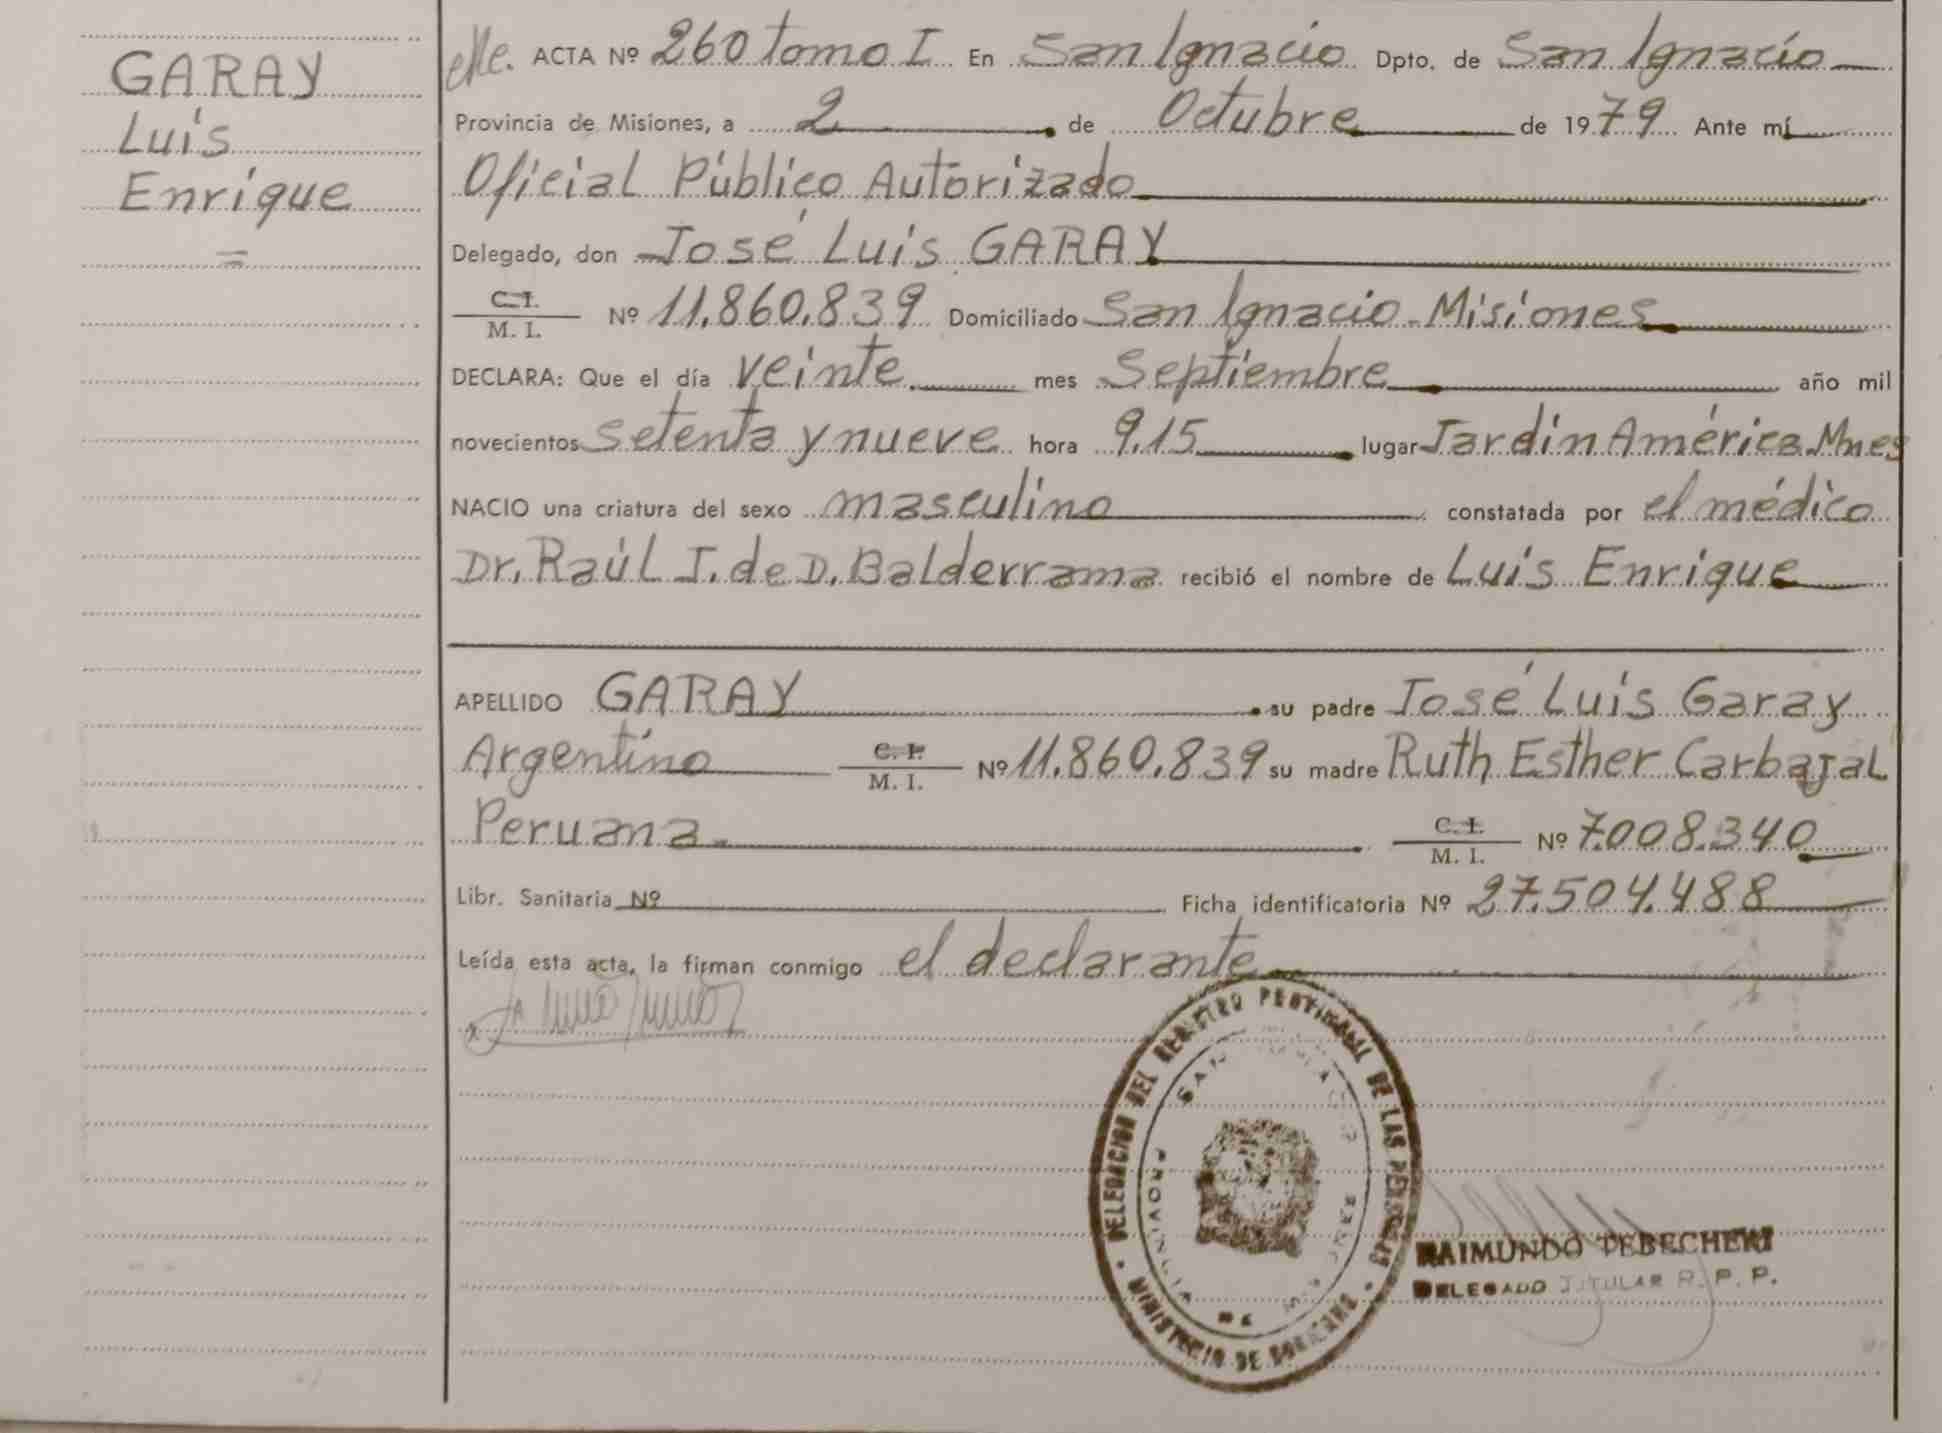 GARAY
Luis
Enrique
ACTA Nº 260 tomo I En San Ignacio Dpto. de San Ignacio
Provincia de Misiones, a 2 de Octubre de 1979 Ante mí
Oficial Público Autorizado
Delegado, don José Luis GARAY
C.I.
M. I. Nº 11.860.839 Domiciliado San Ignacio - Misiones
DECLARA: Que el día veinte mes Septiembre año mil
novecientos setenta y nueve hora 9.15 lugar Jardín América Mnes
NACIO una criatura del sexo masculino constatada por el médico
Dr. Raúl J. de D. Balderrama recibió el nombre de Luis Enrique
APELLIDO GARAY su padre José Luis Garay
Argentino C. I. M. I. Nº 11.860.839 su madre Ruth Esther Carbajal
Peruana. C. I. M. I. Nº 7.008.340
Libr. Sanitaria Nº Ficha identificatoria Nº 27.504.488
Leída esta acta, la firman conmigo el declarante
DELEGACION DEL REGISTRO PROVINCIAL DE LAS PERSONAS
MINISTERIO DE GOBIERNO
SAN IGNACIO
PROVINCIA DE MISIONES
RAIMUNDO TEBECHERI
DELEGADO TITULAR R. P. P.